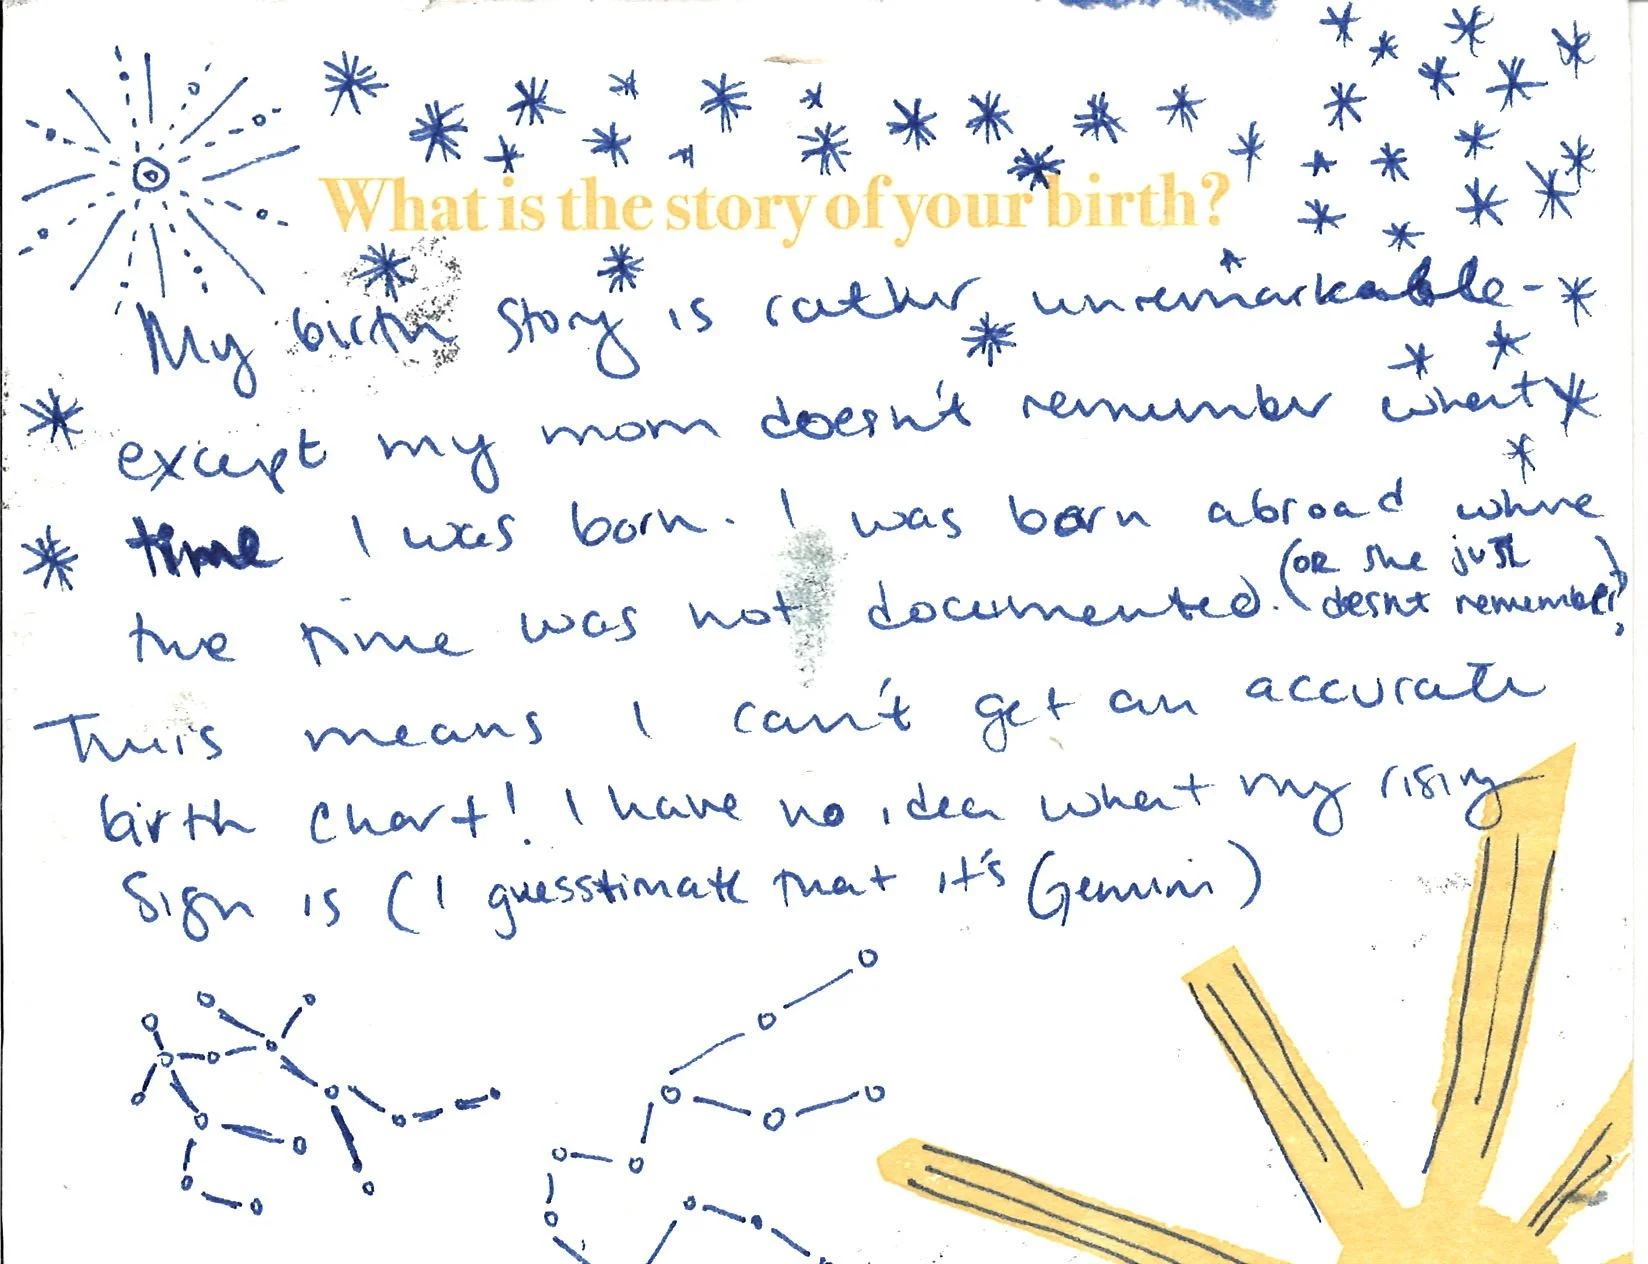 What is the story of your birth?
My birth story is rather unremarkable -
except my mom doesn't remember what
time I was born. I was born abroad where
the time was not documented. (OR she just
doesnt remember?)
This means I can't get an accurate
birth chart! I have no idea what my rising
sign is (I guesstimate that it's Gemini)